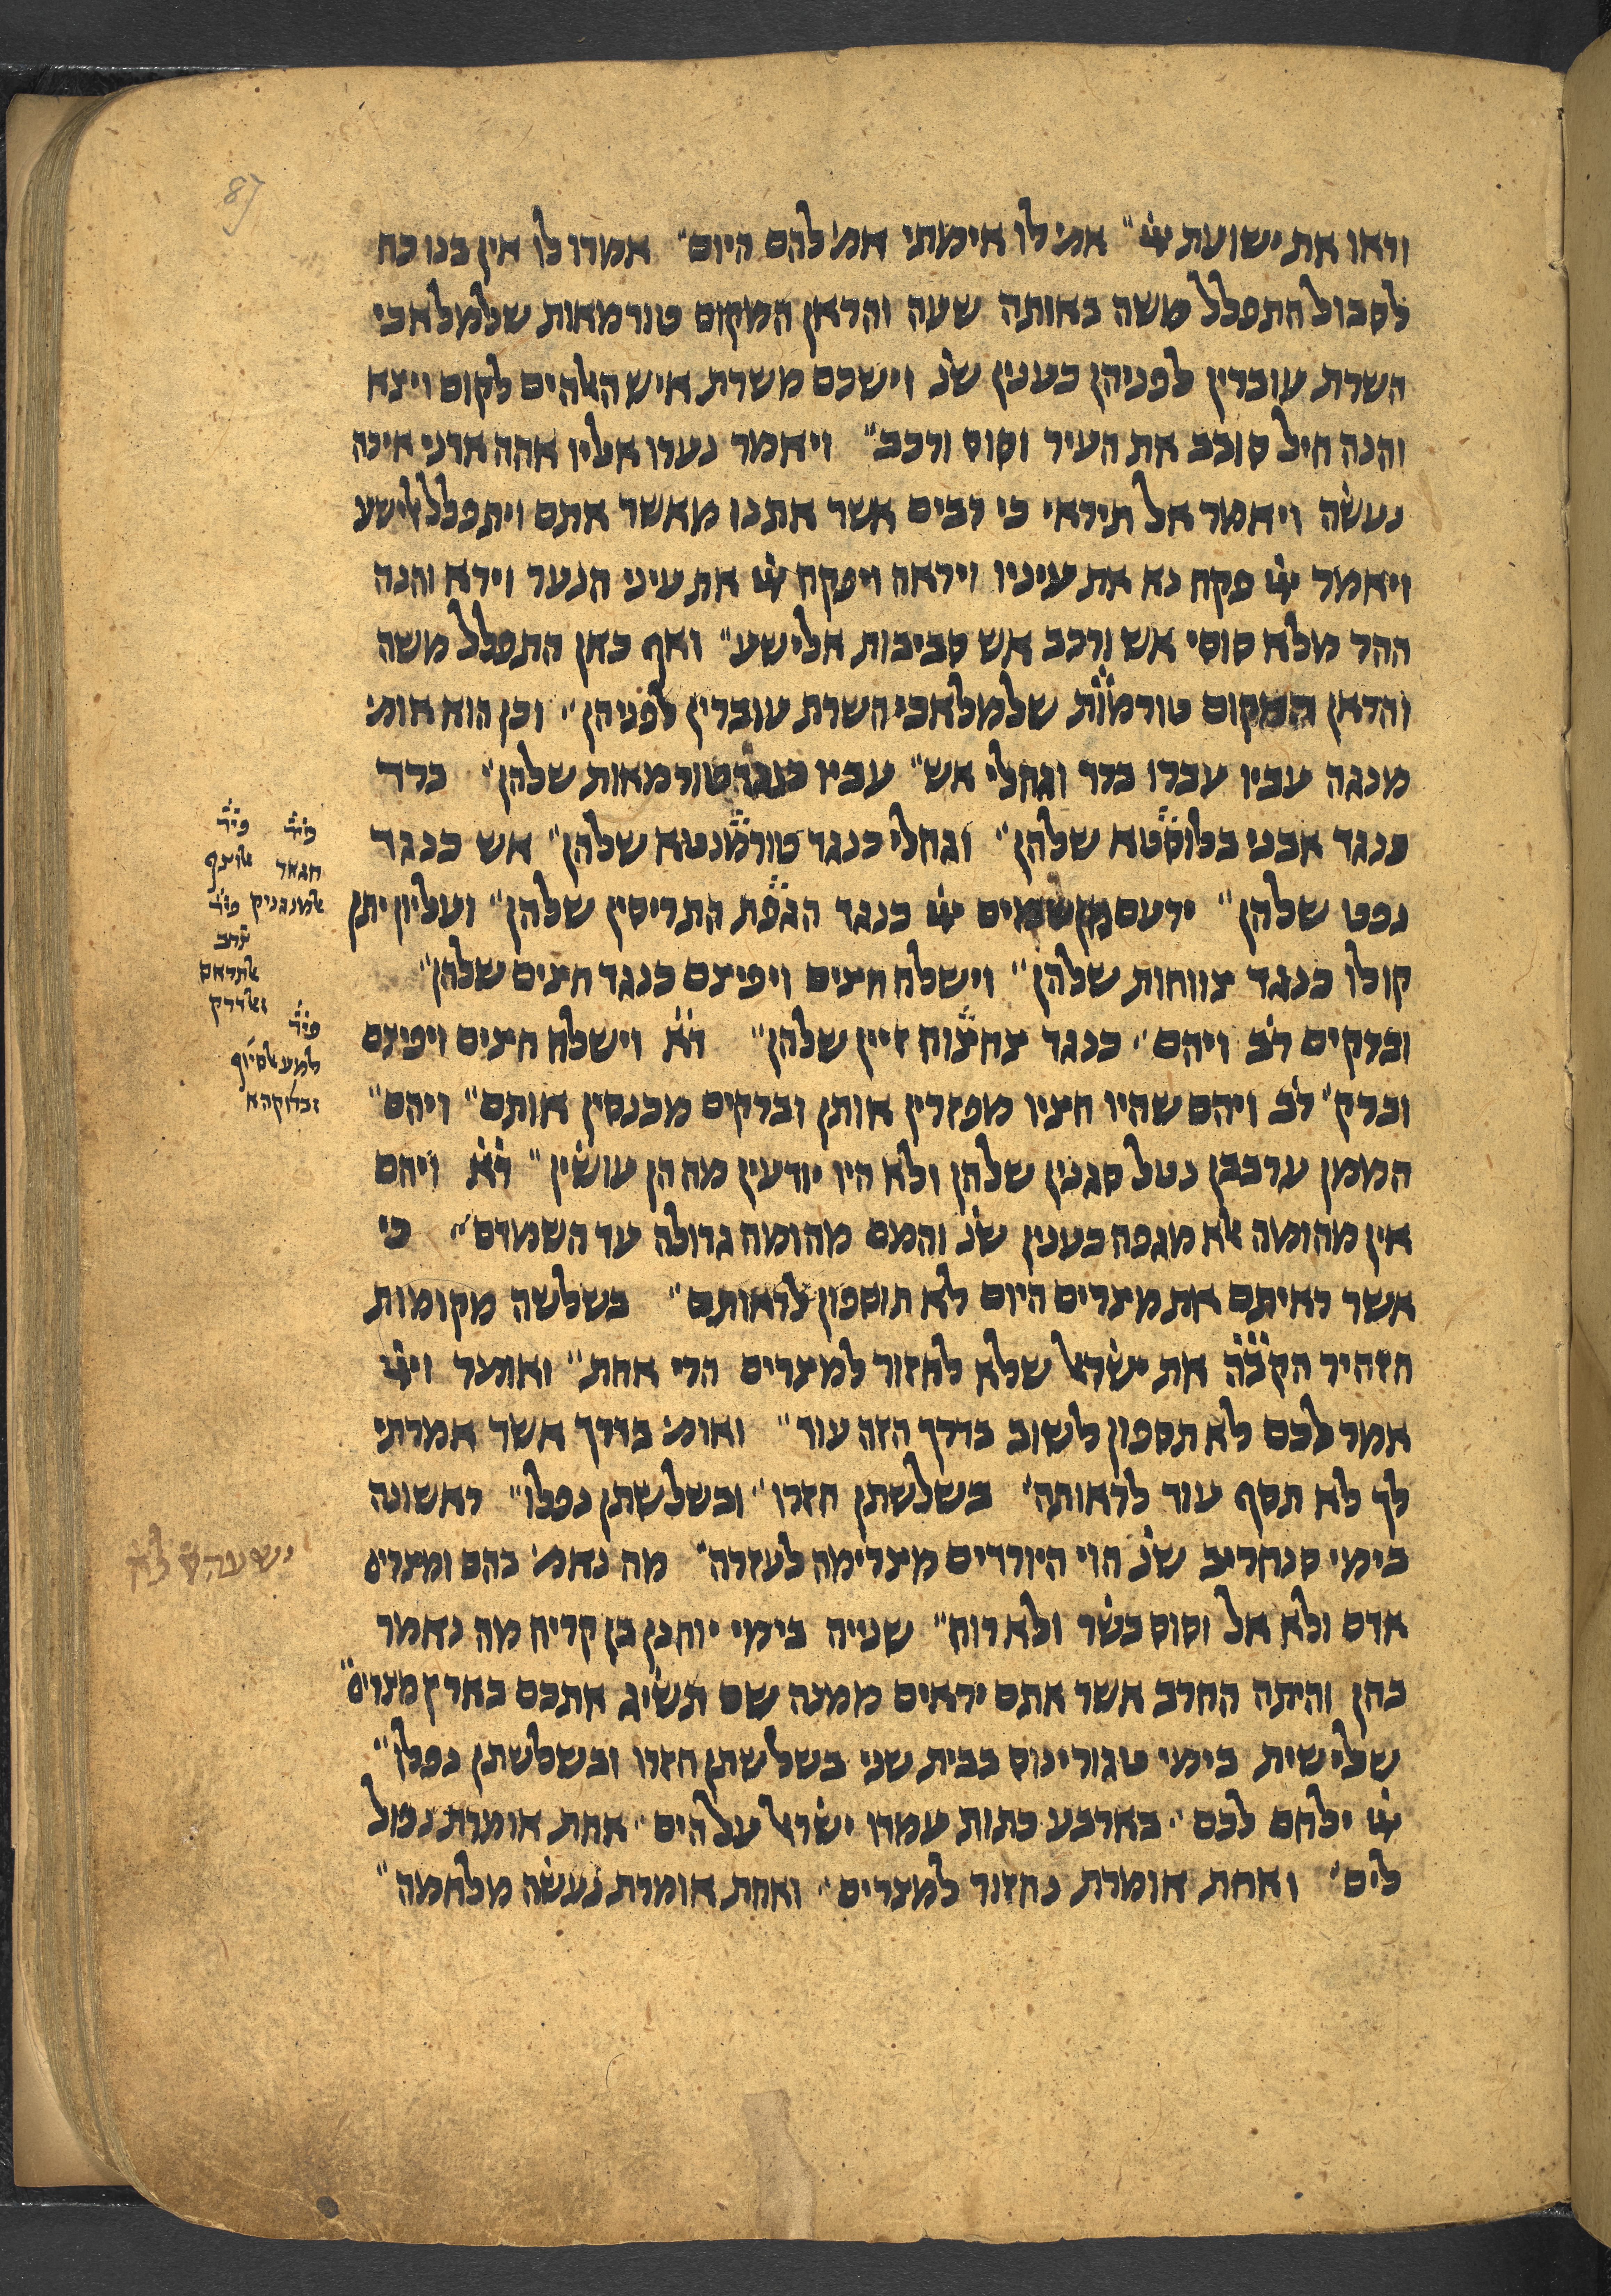 וראו את ישועת ייי״ אמ׳ לו אימתי אמ׳ להם היום״ אמרו לו אין בנו כח
לסבול התפלל משה באותה שעה והראן המקום טורמאות שלמלאכי
השרת עוברין לפניהן כענין שנ׳ וישכם משרת איש האלהים לקום ויצא
והנה חיל סובב את העיר וסוס ורכב״ ויאמר נערו אליו אהה אדני איכה
נעשה ויאמר אל תיראי כי רבים אשר אתנו מאשר אתם ויתפלל אלישע
ויאמר ייי פקח נא את עיניו ויראה ויפקח ייי את עיני הנער וירא והנה
ההר מלא סוסי אש ורכב אש סביבות אלישע״ ואף כאן התפלל משה
והראן המקום טורמות שלמלאכי השרת עוברין לפניהן״ וכן הוא אומ׳
מנגה עביו עברו ברד וגחלי אש״ עביו כנגד טורמאות שלהן״ ברד
כנגד אבני בלוסטא שלהן״ וגחלי כנגד טורמנטא שלהן״ אש כנגד
נפט שלהן״ ירעם משמים ייי כנגד הגפת התריסין שלהן״ ועליון יתן
קולו כנגד צווחות שלהן״ וישלח חצים ויפיצם כנגד חצים שלהן״
וברקים רב ויהם״ כנגד צחצוח זיין שלהן״ דא וישלח חצים ויפיצם
וברק׳ רב ויהם שהיו חציו מפזרין אותן וברקים מכנסין אותם״ ויהם״
הממן ערבבן נטל סגנין שלהן ולא היו יודעין מה הן עושין״ דא ויהם
אין מהומה אלא מגפה כענין שנ׳ והמם מהומה גדולה עד השמדם״ כי
אשר ראיתם את מצרים היום לא תוספון לראותם״ בשלשה מקומות
הזהיר הקבה את ישראל שלא לחזור למצרים הרי אחת״ ואומר וייי
אמר לכם לא תספון לשוב בדרך הזה עוד״ ואומ׳ בדרך אשר אמרתי
לך לא תסף עוד לראותה״ בשלשתן חזרו״ ובשלשתן נפלו״ ראשונה
בימי סנחריב שנ׳ הוי היורדים מצרימה לעזרה״ מה נאמ׳ בהם ומצרים
אדם ולא אל וסוס בשר ולא רוח״ שנייה בימי יוחנן בן קריח מה נאמר
בהן והיתה החרב אשר אתם יראים ממנה שם תשיג אתכם בארץ מצרים״
שלישית בימי טגורינוס בבית שני בשלשתן חזרו ובשלשתן נפלו״
ייי ילחם לכם״ בארבע כתות עמדו ישראל על הים״ אחת אומרת נפול
לים״ ואחת אומרת נחזור למצרים״ ואחת אומרת נעשה מלחמה״
פיר
חגאר
אלמנגניק פיר
צרב
אלתראס
ואלדרק
פיר
למע אלסיוף
ישעהס לא
87